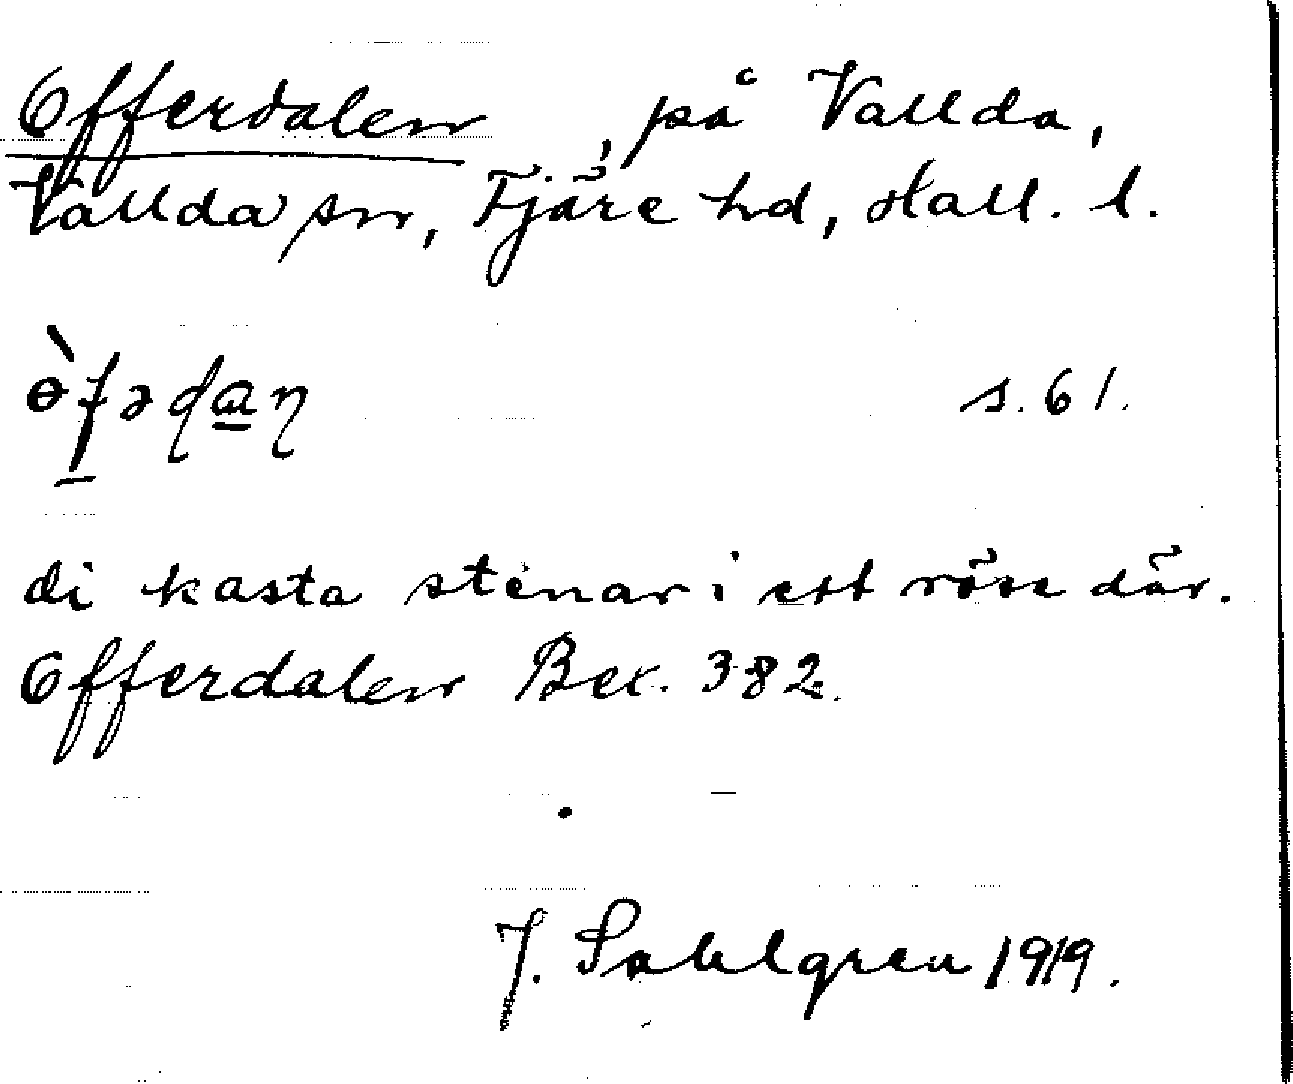 Offerdalen, på Vallda,
Vallda sn, Fjäre hd, Hall. l.
ɵ̀f̠əɖa̠ɳ s. 61.
di kasta stenar i ett röse där.
Offerdalen Bex. 382.
J. Sahlgren 1919.